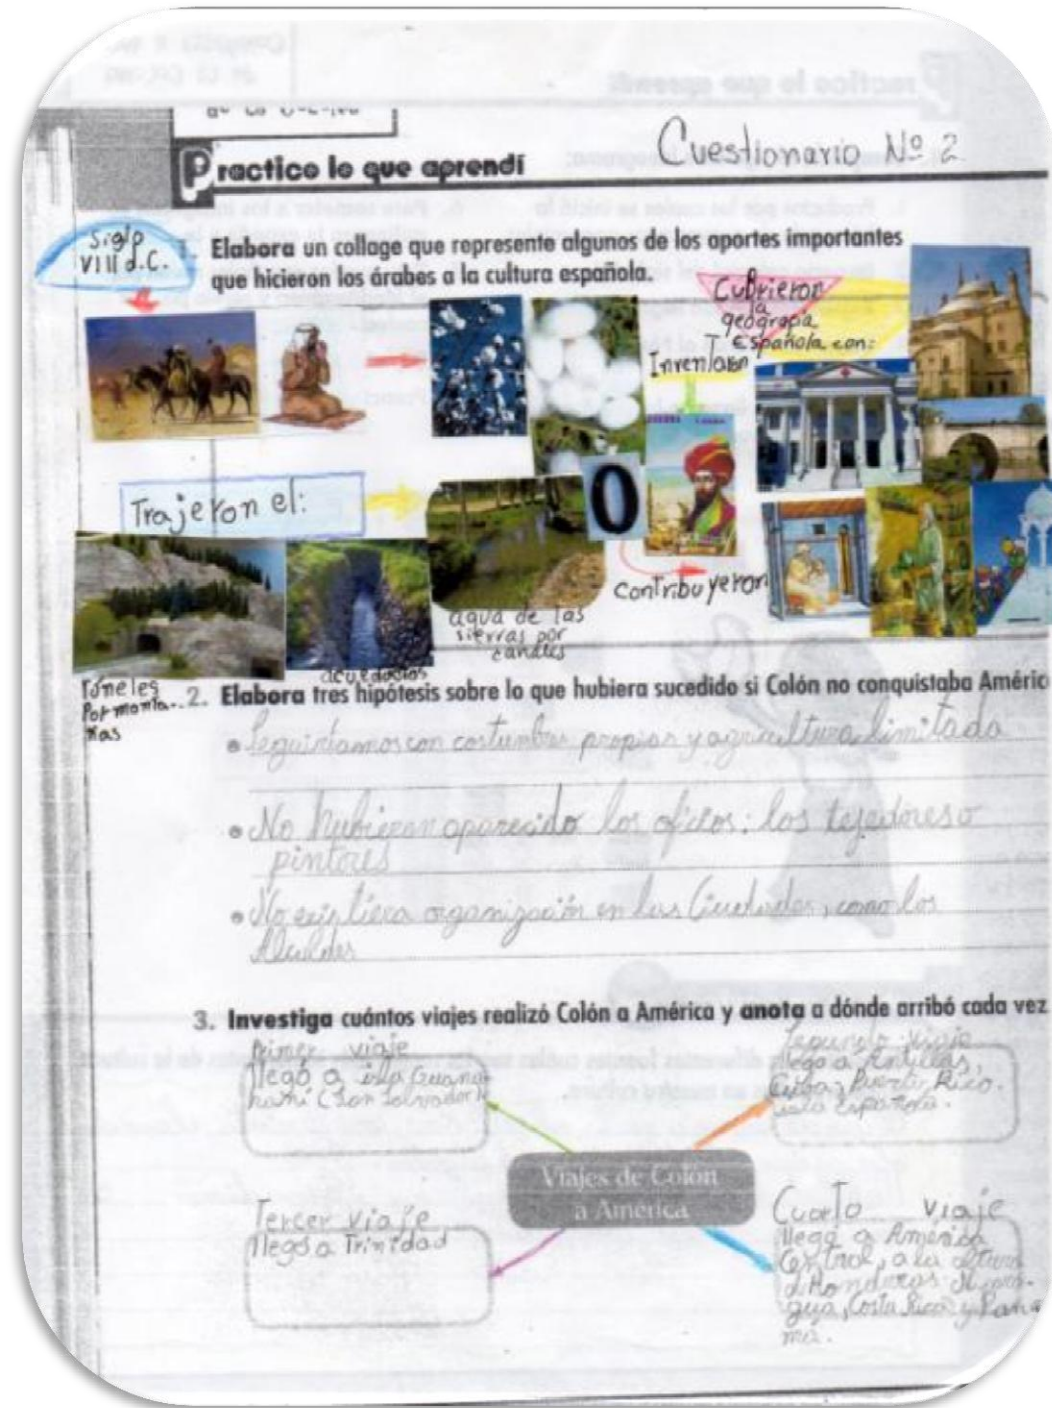 Cuestionario Nº 2
Practico lo que aprendí
Siglo
VIII d.C.
1. Elabora un collage que represente algunos de los aportes importantes
que hicieron los árabes a la cultura española.
Cubrieron
la
geografía
Española con:
Inventaron
0
Trajeron el:
Contribuyeron
agua de las
sierras por
canales
acueductos
Túneles
por monta-
ñas
2. Elabora tres hipótesis sobre lo que hubiera sucedido si Colón no conquistaba Améric
• Seguiríamos con costumbres propias y agricultura limitada
• No hubieran aparecido los oficios: los tejedores o
pintores
• No existiera organización en las Ciudades, como los
Alcaldes
3. Investiga cuántos viajes realizó Colón a América y anota a dónde arribó cada vez
Primer viaje
llegó a isla Guana-
hami (San Salvador)
Segundo viaje
llego a Antillas,
Cuba, Puerto Rico.
isla Española.
Viajes de Colón
a América
Tercer viaje
llegó a Trinidad
Cuarto viaje
llegó a América
Central, a la altura
d Honduras Nicara-
gua, Costa Rica y Pana
má.